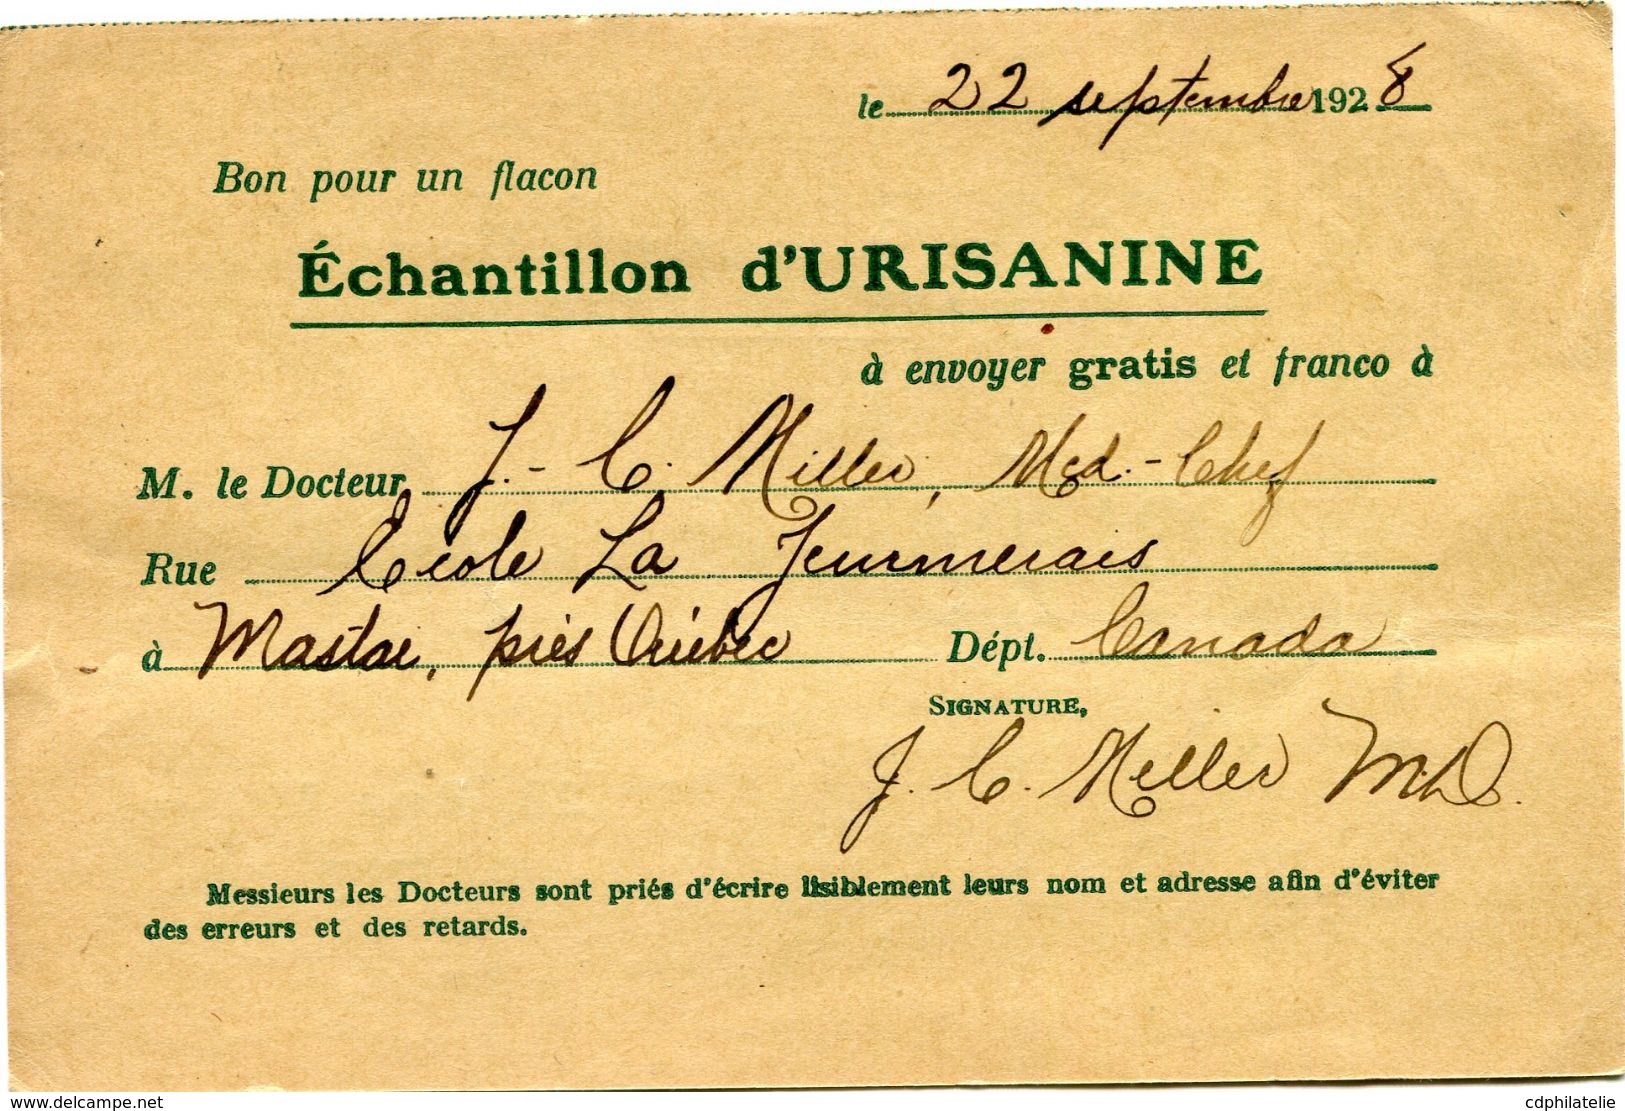 le 22 septembre 1928
Bon pour un flacon
Échantillon d'URISANINE
à envoyer gratis et franco à
M. le Docteur J.-C. Miller, Méd.-Chef
Rue École La Jeunmerais
à Mastaï, près Québec Dépt. Canada
SIGNATURE,
J. C. Miller M.D.
Messieurs les Docteurs sont priés d'écrire lisiblement leurs nom et adresse afin d'éviter
des erreurs et des retards.
www.delcampe.net
cdphilatelie